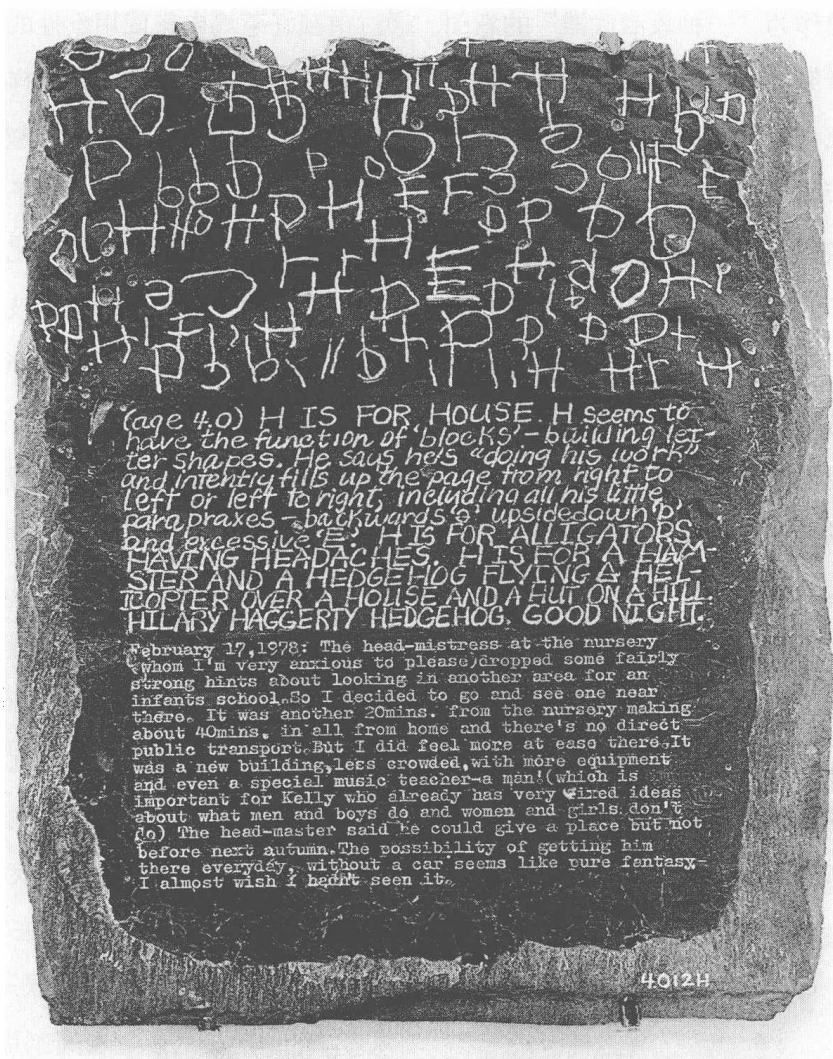 (age 4.0) H IS FOR HOUSE. H seems to
have the function of 'blocks' – building let-
ter shapes. He says he's "doing his work"
and intently fills up the page from right to
left or left to right, including all his little
parapraxes – backwards 'ə' upsidedown 'p'
and excessive 'E'. H IS FOR ALLIGATORS
HAVING HEADACHES. H IS FOR A HAM-
STER AND A HEDGEHOG FLYING A HEL-
ICOPTER OVER A HOUSE AND A HUT ON A HILL.
HILARY HAGGERTY HEDGEHOG. GOOD NIGHT.
February 17,1978: The head-mistress at the nursery
(whom I'm very anxious to please)dropped some fairly
strong hints about looking in another area for an
infants school.So I decided to go and see one near
there. It was another 20mins. from the nursery making
about 40mins. in all from home and there's no direct
public transport.But I did feel more at ease there.It
was a new building,less crowded,with more equipment
and even a special music teacher-a man!(which is
important for Kelly who already has very fixed ideas
about what men and boys do and women and girls don't
do) The head-master said he could give a place but not
before next autumn.The possibility of getting him
there everyday, without a car seems like pure fantasy-
I almost wish I hadn't seen it.
4012H